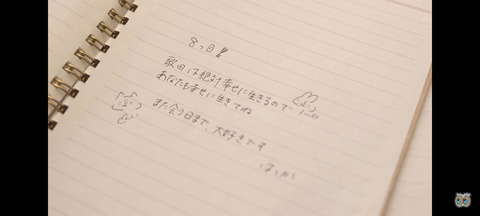 8つ目!!
歌田は絶対幸せに生きるので
あなたも幸せに生きてね
また会う日まで、大好きです